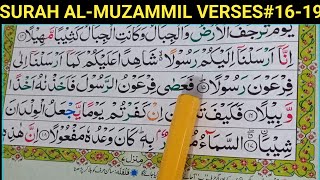 SURAH AL-MUZAMMIL VERSES#16-19
يَوْمَ تَرْجُفُ الْاَرْضُ وَالْجِبَالُ وَكَانَتِ الْجِبَالُ كَثِيْبًا مَّهِيْلًا
اِنَّاۤ اَرْسَلْنَاۤ اِلَيْكُمْ رَسُوْلًا شَاهِدًا عَلَيْكُمْ كَمَاۤ اَرْسَلْنَاۤ اِلٰى
فِرْعَوْنَ رَسُوْلًا فَعَصٰى فِرْعَوْنُ الرَّسُوْلَ فَاَخَذْنٰهُ اَخْذًا
وَّبِيْلًا فَكَيْفَ تَتَّقُوْنَ اِنْ كَفَرْتُمْ يَوْمًا يَّجْعَلُ الْوِلْدَانَ
شِيْبًا السَّمَآءُ مُنْفَطِرٌۢ بِهٖ كَانَ وَعْدُهٗ مَفْعُوْلًا اِنَّ هٰذِهٖ